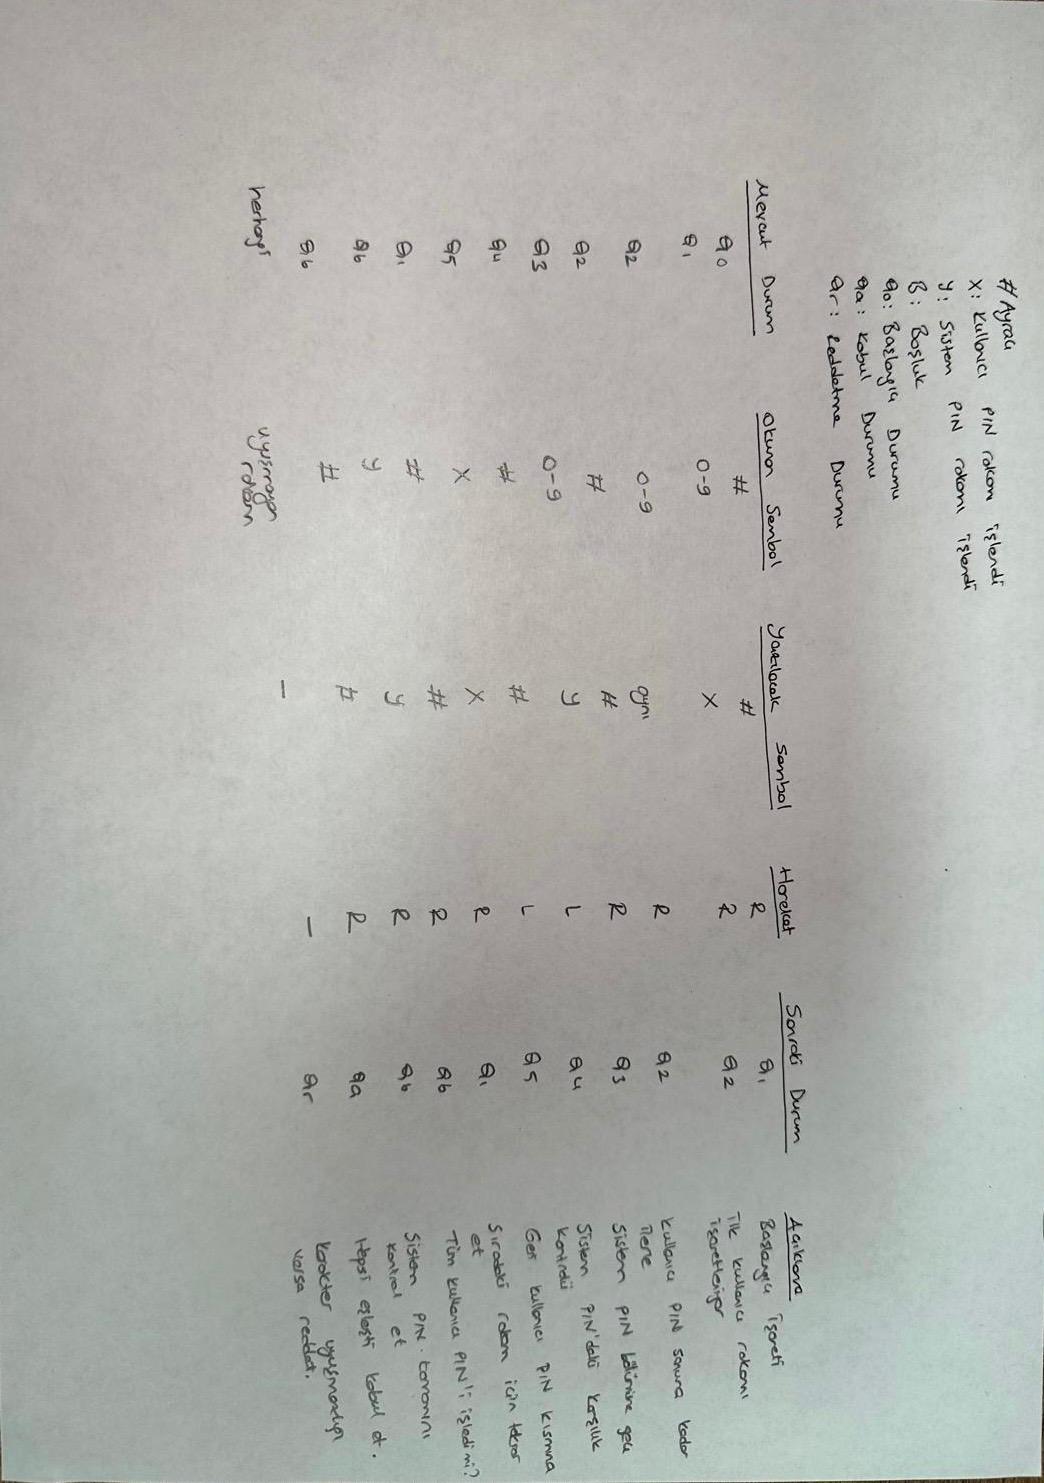 # Ayracı
X: Kullanıcı PIN rakam işlendi
y: Sistem PIN rakamı işlendi
B: Boşluk
q0: Başlangıç Durumu
qa: Kabul Durumu
qr: Reddetme Durumu
Mevcut Durum Okunan Sembol Yazılacak Sembol Hareket Sonraki Durum Açıklama
q0 # # R q1 Başlangıç işareti
q1 0-9 X R q2 İlk kullanıcı rakamı
işaretleniyor
q2 0-9 aynı R q2 Kullanıcı PIN sonuna kadar
ilerle
q2 # # R q3 Sistem PIN bölümüne geç
q3 0-9 y L q4 Sistem PIN'deki karşılık
kontrolü
q4 # # L q5 Geri kullanıcı PIN kısmına
q5 X X R q1 Sıradaki rakam için tekrar
et
q1 # # R q6 Tüm kullanıcı PIN'i işledi mi?
q6 y y R q6 Sistem PIN tamamını
kontrol et
q6 # # R qa Hepsi eşleşti kabul et.
herhangi uyuşmayan
rakam — — qr Karakter uyuşmadığı
varsa reddet.